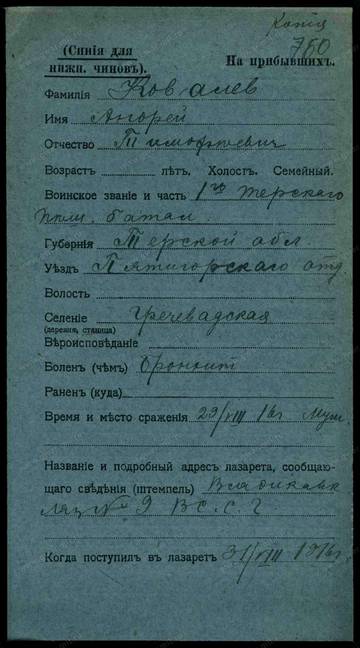 Копия
760
(Синія для
нижн. чиновъ).
На прибывшихъ.
Фамилія Ковалев
Имя Андрей
Отчество Тимофеевич
Возрастъ лѣтъ. Холост. Семейный.
Воинское званіе и часть 1го Терскаго
пласт. батал.
Губернія Терской обл
Уѣздъ Пятигорскаго отд
Волость
Селеніе
(деревня, станица)
Вѣроисповѣданіе
Боленъ (чѣмъ) Бронхит
Раненъ (куда)
Время и мѣсто сраженія 29/VIII 16г
Названіе и подробный адресъ лазарета, сообщаю-
щаго свѣдѣнія (штемпель) Владикавк
№ 9 В. С. Г
Когда поступилъ въ лазаретъ 31/VIII 1916г